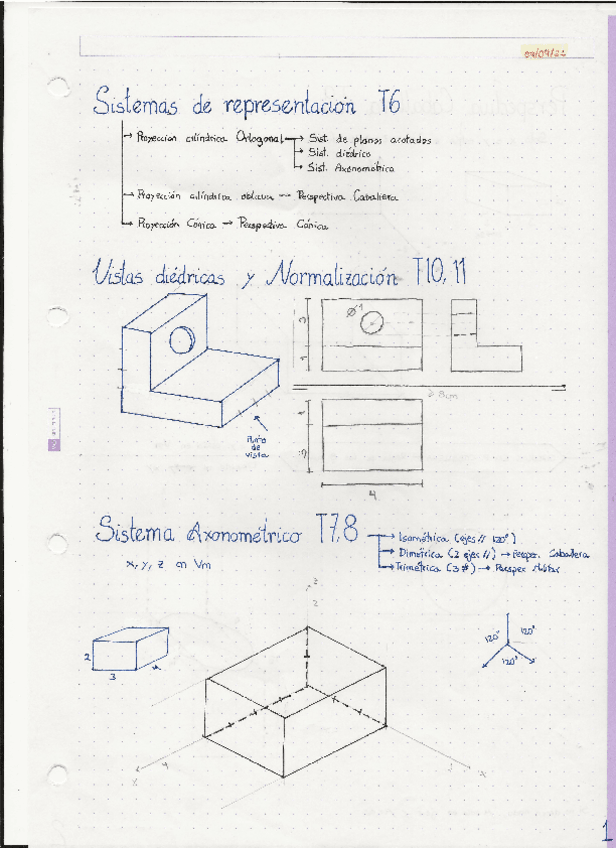 Sistemas de representación T6
Proyección cilíndrica Ortogonal → Sist. de planos acotados
→ Sist. diédrico
→ Sist. Axonométrico
Proyección cilíndrica oblicua → Perspectiva Caballera
Proyección Cónica → Perspectiva Cónica
Vistas diédricas y Normalización T10, 11
3
Ø 1
1
8cm
Punto
de
vista
1
4
Sistema Axonométrico T7,8 → Isométrica (ejes // 120°)
→ Dimétrica (2 ejes //) → Perspec. Caballera
→ Trimétrica (3 ≠) → Perspec
x, y, z en Vm
z
120° 120°
120°
2
3
4
x
1